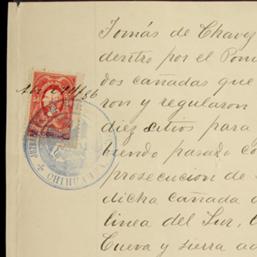 Tomás de Chavy
dentro por el Pon
dos cañadas que
ron y regularon
diez sitios para
biendo pasado co
prosecucion de
dicha cañada d
linea del Sur,
Cueva y sierra ad
CHIHUA